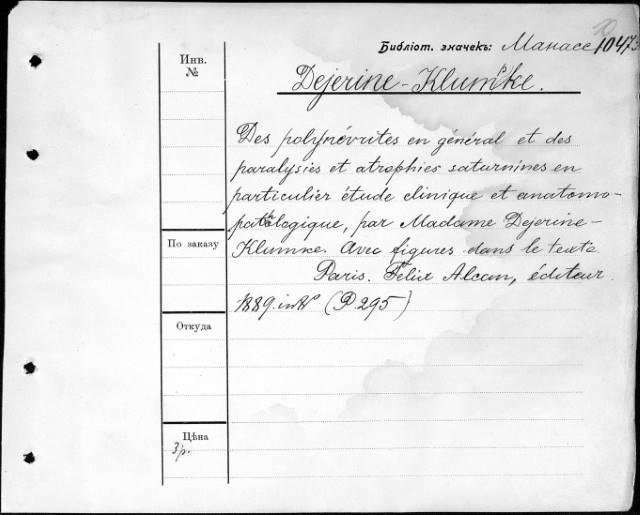 10
Библіот. значекъ: Манасс 10473
Инв.
№
Dejerine-Klumpke.
Des polynévrites en général et des
paralysies et atrophies saturnines en
particulier étude clinique et anatomo-
pathologique, par Madame Dejerine-
По заказу
Klumke. Avec figures dans le texte
Paris. Félix Alcan, éditeur.
1889. in 8° (P. 295)
Откуда
Цѣна
3 р.